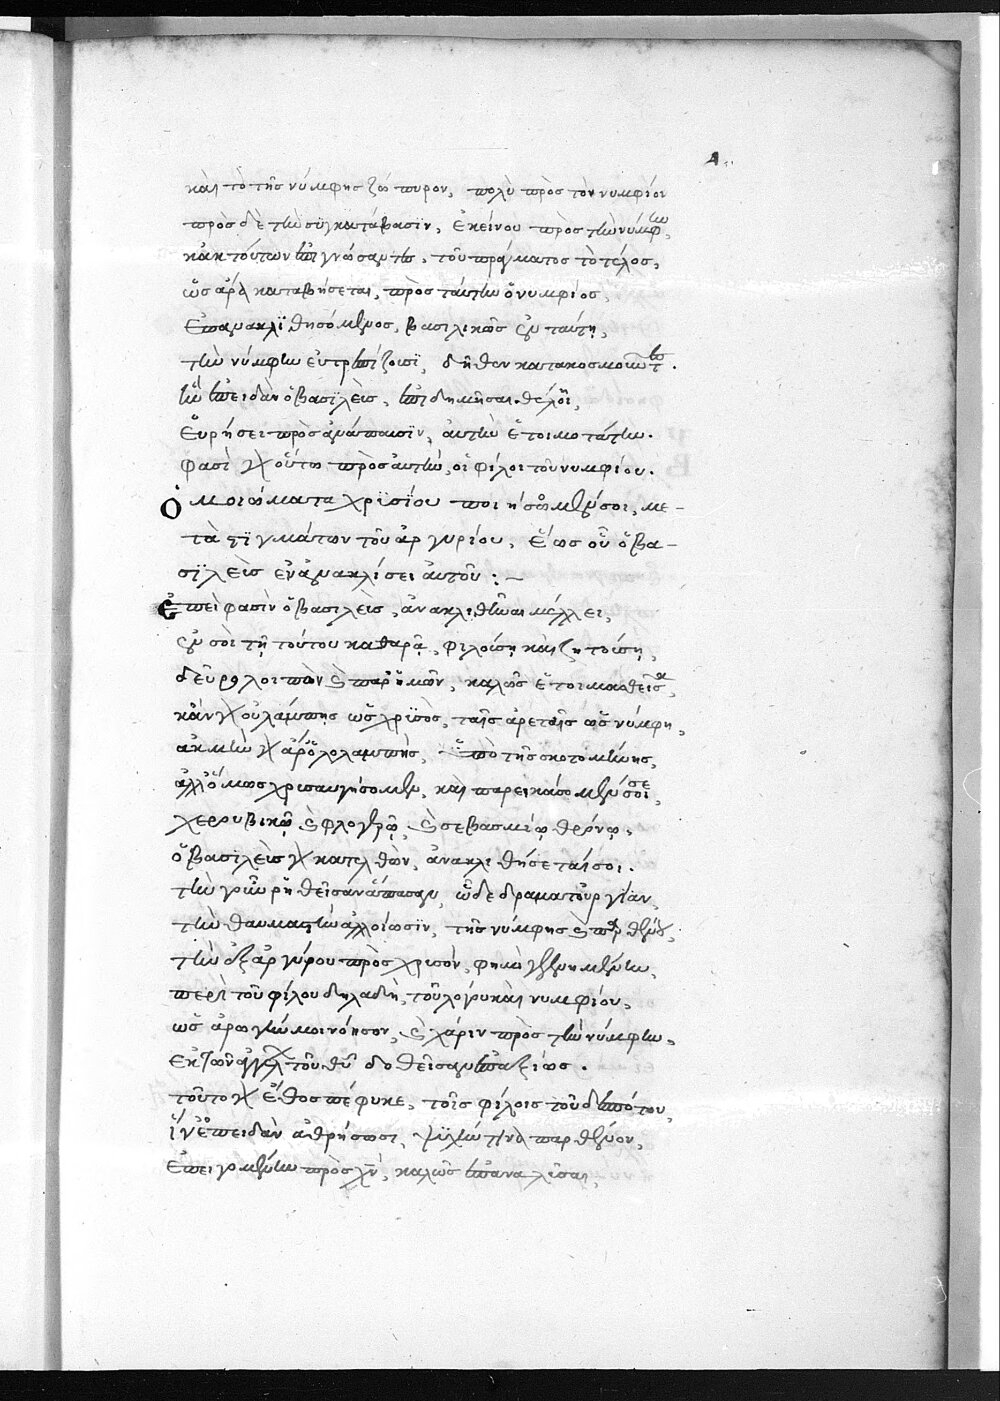 καὶ τὸ τῆς νύμφης ζώπυρον, πολὺ πρὸς τὸν νυμφίον
πρὸς δὲ τὴν συγκατάβασιν, ἐκείνου πρὸς τὴν νύμφην,
κἀκ τούτων ἐπιγνώσαντες, τοῦ πράγματος τὸ τέλος,
ὡς ἄρα καταβήσεται, πρὸς ταύτην ὁ νυμφίος,
ἐπανακλιθησόμενος, βασιλικῶς ἐν ταύτῃ,
τὴν νύμφην εὐτρεπίζουσι, δῆθεν κατακοσμοῦντες.
ἵν' ἐπειδὰν ὁ βασιλεὺς, ἐπιδημῆσαι θέλοι,
εὑρήσει πρὸς ἀνάπαυσιν, αὐτὴν ἑτοιμοτάτην.
φασὶ γὰρ οὕτω πρὸς αὐτὴν, οἱ φίλοι τοῦ νυμφίου.
Ὁμοιώματα χρυσίου ποιήσωμέν σοι, με-
τὰ στιγμάτων τοῦ ἀργυρίου, ἕως οὗ ὁ βα-
σιλεὺς ἐν ἀνακλίσει αὐτοῦ:-
Ἐπεί φασιν ὁ βασιλεὺς, ἀνακλιθῆναι μέλλει,
ἐν σοὶ τῇ τούτου καθαρᾷ, φιλούσῃ καὶ ζητούσῃ,
δεῦρο λοιπὸν καὶ παρ' ἡμῶν, καλῶς ἑτοιμασθεῖσα,
κἂν γὰρ οὐ λάμπῃς ὡς χρυσὸς, ταῖς ἀρεταῖς ὡς νύμφη,
ἀκμὴν γὰρ ἄρ' ὁλολαμπὴς, ὑπὸ τῆς σκοτομήνης,
ἀλλ' ὅμως χρυσαυγήσομεν, καὶ παρεικάσομέν σε σοι,
χερουβικῷ καὶ φλογερῷ, καὶ σεβασμίῳ θρόνῳ,
ὁ βασιλεὺς γὰρ κατελθὼν, ἀνακλιθήσεταί σοι.
τὴν γοῦν ῥηθεῖσαν ἅπασαν, ὧδε δραματουργίαν,
τὴν θαυμαστὴν ἀλλοίωσιν, τῆς νύμφης καὶ παρθένου,
τὴν ἐξ ἀργύρου πρὸς χρυσὸν, φημὶ γεγενημένην,
περὶ τοῦ φίλου δηλαδὴ, τοῦ λόγου καὶ νυμφίου,
ὡς ἀρωγήν μοι νόησον, καὶ χάριν πρὸς τὴν νύμφην,
ἐκ τῶν ἀγγέλων τοῦ θεοῦ δοθεῖσαν ἐπαξίως.
τοῦτο γὰρ ἔθος πέφυκε, τοῖς φίλοις τοῦ δεσπότου,
ἵν' ἐπειδὰν ἀθρήσωσι, ψυχήν τινα παρθένον,
ἐπειγομένην πρὸς χριστὸν, καλῶς ἐπαναλῦσαι,